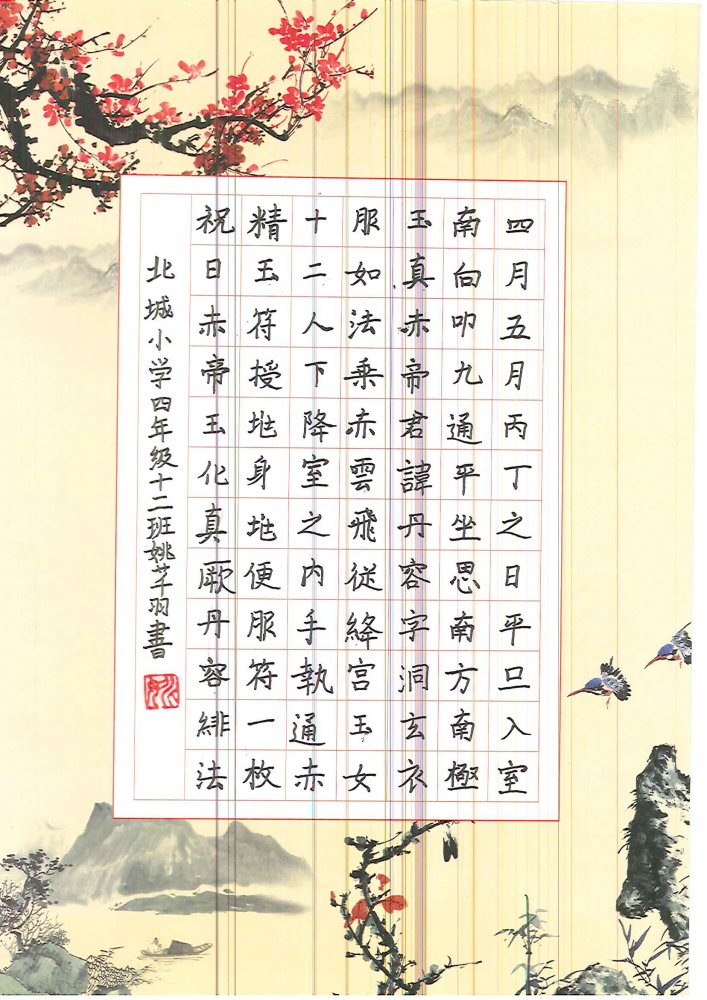 四月五月丙丁之日平旦入室
南向叩九通平坐思南方南極
玉真赤帝君諱丹容字洞玄衣
服如法乗赤雲飛従絳宫玉女
十二人下降室之内手執通赤
精玉符授地身地便服符一枚
祝日赤帝玉化真厥丹容緋法
北城小学四年级十二班姚芊羽書